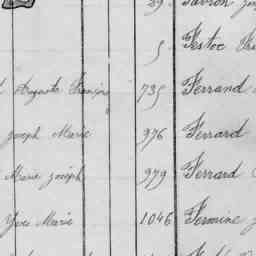 29 Favron
5 Festoc
Auguste 735 Ferrand
Joseph Marie 976 Ferrard
Marie Joseph 979 Ferrard
Yves Marie 1046 Fermine